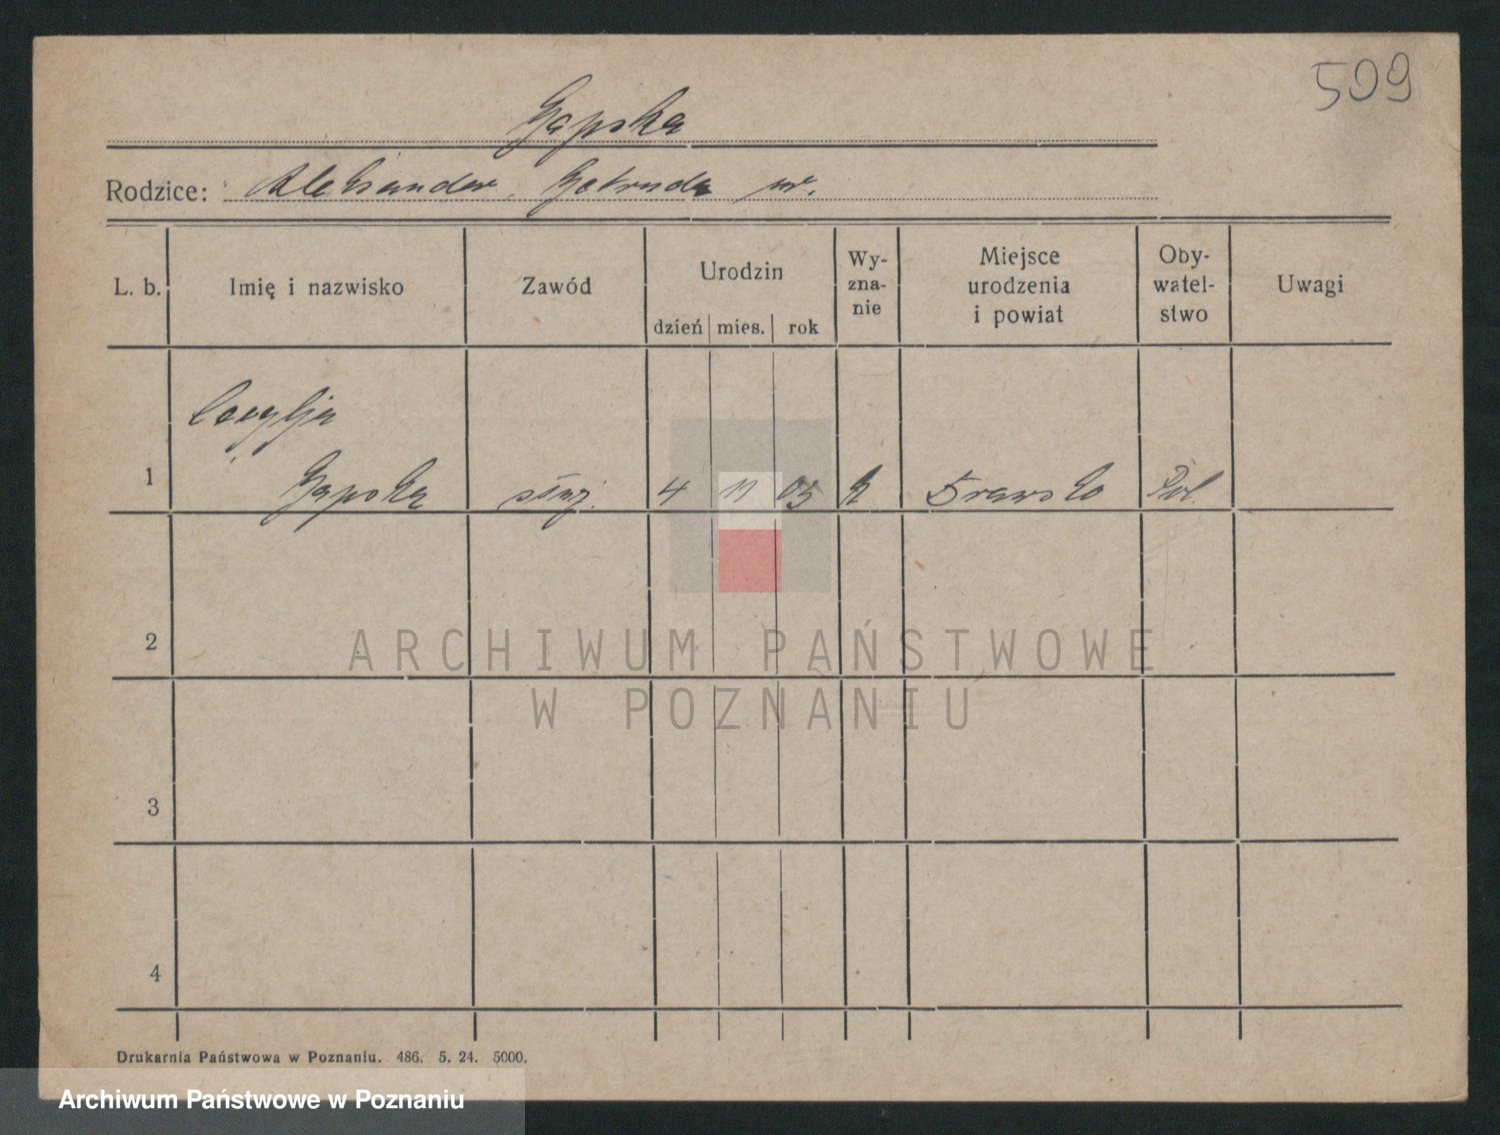 509
Gąpska
Rodzice: Aleksander, Getruda ur.
L. b. Imię i nazwisko Zawód Urodzin Wy-zna-nie Miejsce urodzenia i powiat Oby-watel-stwo Uwagi
dzień mies. rok
Cecylja
1 Gąpska służ. 4 11 03 k Drawsko Pol.
2
3
4
ARCHIWUM PAŃSTWOWE
W POZNANIU
Drukarnia Państwowa w Poznaniu. 486. 5. 24. 5000.
Archiwum Państwowe w Poznaniu